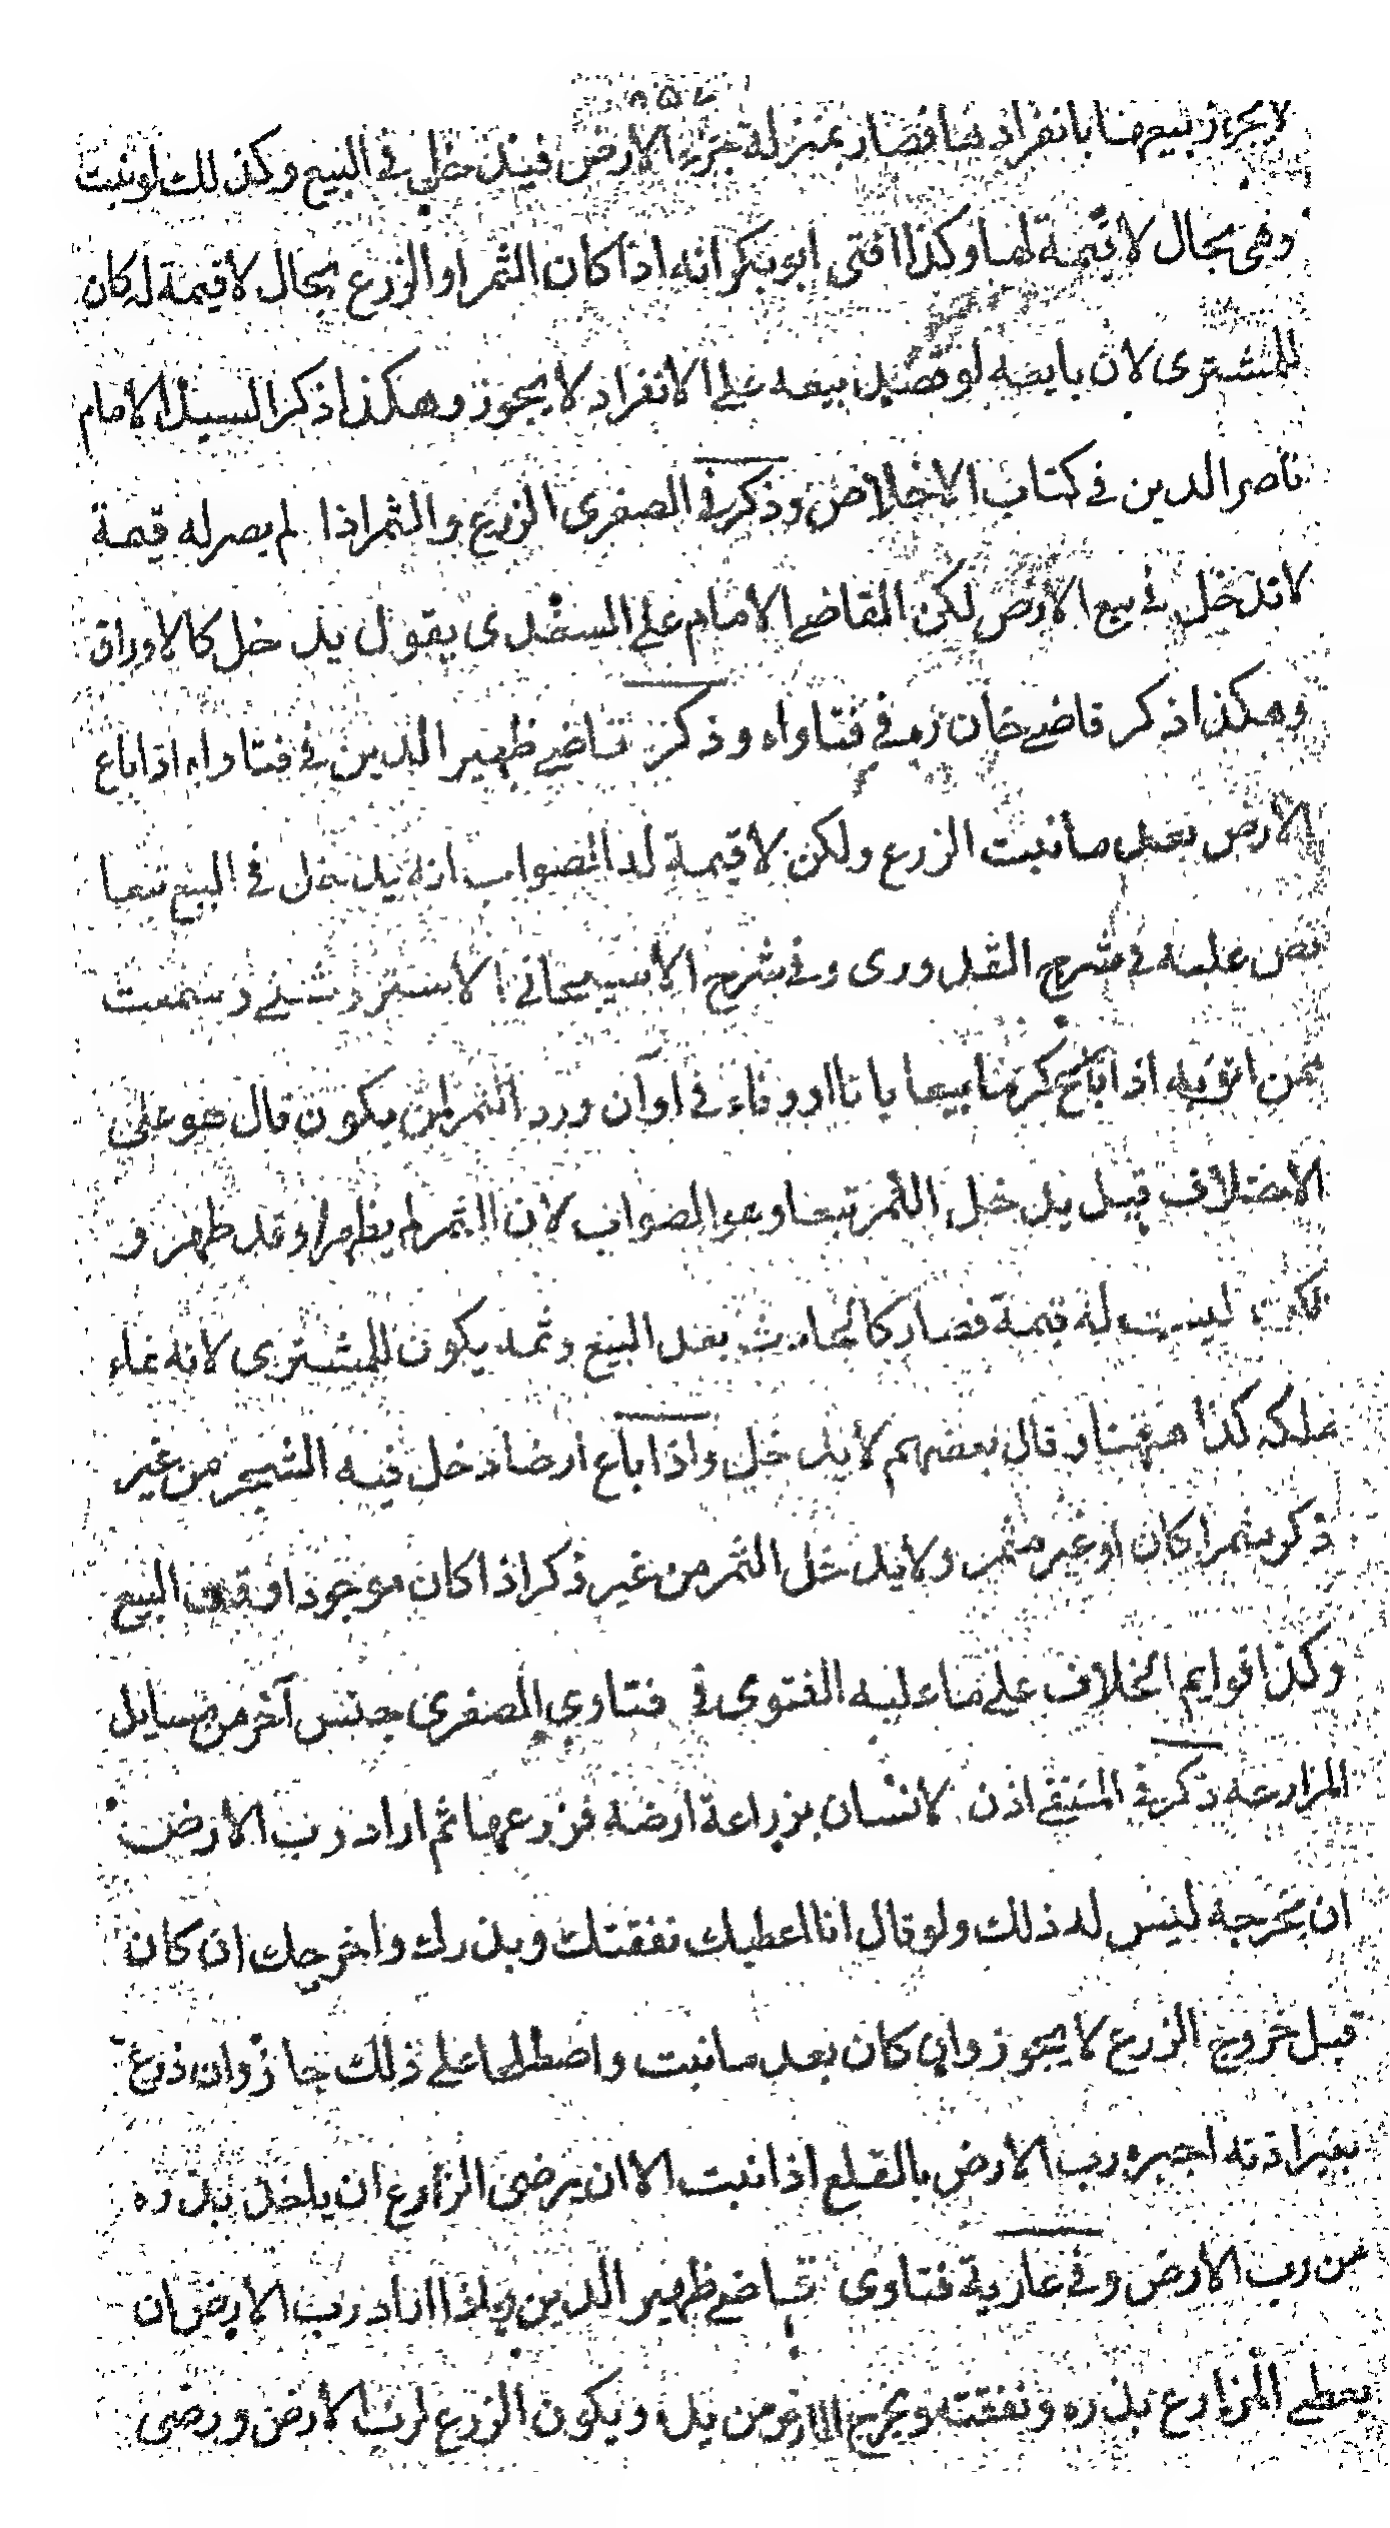 لا يجوز بيعها بانفرادها فصار بمنزلة جزء الارض فيدخل في البيع وكذلك لو نبت
وهى بحال لا قيمة لها وكذا افتى ابو بكر انه اذا كان الثمر او الزرع بحال لا قيمة له كان
للمشترى لان بايعه لو قصد بيعه على الانفراد لا يجوز وهكذا ذكر السيد الامام
ناصر الدين في كتاب الاخلاص وذكر في الصغرى الزرع والثمر اذا لم يصر له قيمة
لا تدخل في بيع الارض لكن القاضي الامام على السغدى يقول يدخل كالاوراق
وهكذا ذكر قاضي خان ره في فتاواه وذكر قاضي ظهير الدين في فتاواه اذا باع
الارض بعد ما نبت الزرع ولكن لا قيمة له الصواب انه يدخل في البيع تبعا
نص عليه في شرح القدورى وفي شرح الاسبيجاني الاستروشني وسمعت
ممن اثق به اذا باع كرما بيعا باتا او وفاء في اوآن ورد الثمر لمن يكون قال هو على
الاختلاف قيل يدخل الثمر تبعا وهو الصواب لان الثمر لم يظهر او قد ظهر و
لكن ليست له قيمة فصار كالحادث بعد البيع وثمه يكون للمشترى لانه نماء
ملكه كذا ههنا وقال بعضهم لا يدخل واذا باع ارضا دخل فيه الشجر من غير
ذكر مثمرا كان او غير مثمر ولا يدخل الثمر من غير ذكر اذا كان موجودا وقت البيع
وكذا قوايم الخلاف على ما عليه الفتوى في فتاوى الصغرى جنس آخر من مسايل
المزارعة ذكر في المنتقى اذن لانسان بزراعة ارضه فزرعها ثم اراد رب الارض
ان يخرجه ليس له ذلك ولو قال انا اعطيك نفقتك وبذرك واخرجك ان كان
قبل خروج الزرع لا يجوز وان كان بعد ما نبت واصطلحا على ذلك جاز وان زرع
بغير اذنه اجبره رب الارض بالقلع اذا نبت الا ان يرضى الزارع ان ياخذ بذره
من رب الارض وفي عارية فتاوى قاضي ظهير الدين ولذا اراد رب الارض ان
يعطى المزارع بذره ونفقته ويخرج المزارع من يد ويكون الزرع لرب الارض ورضى